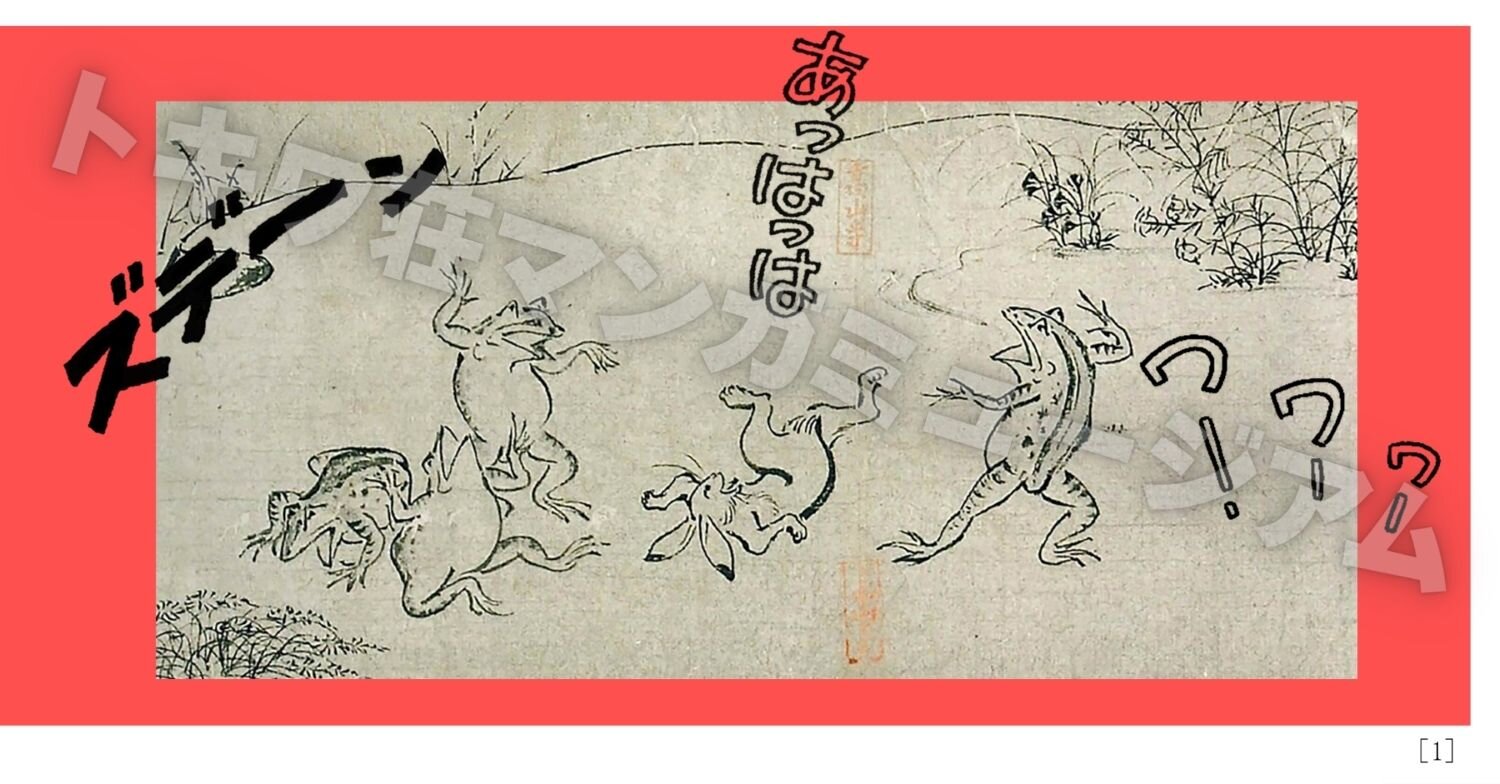 トキワ荘マンガミュージアム
ズデーン
あっはっは
ワー!
ワー
ワー
[1]